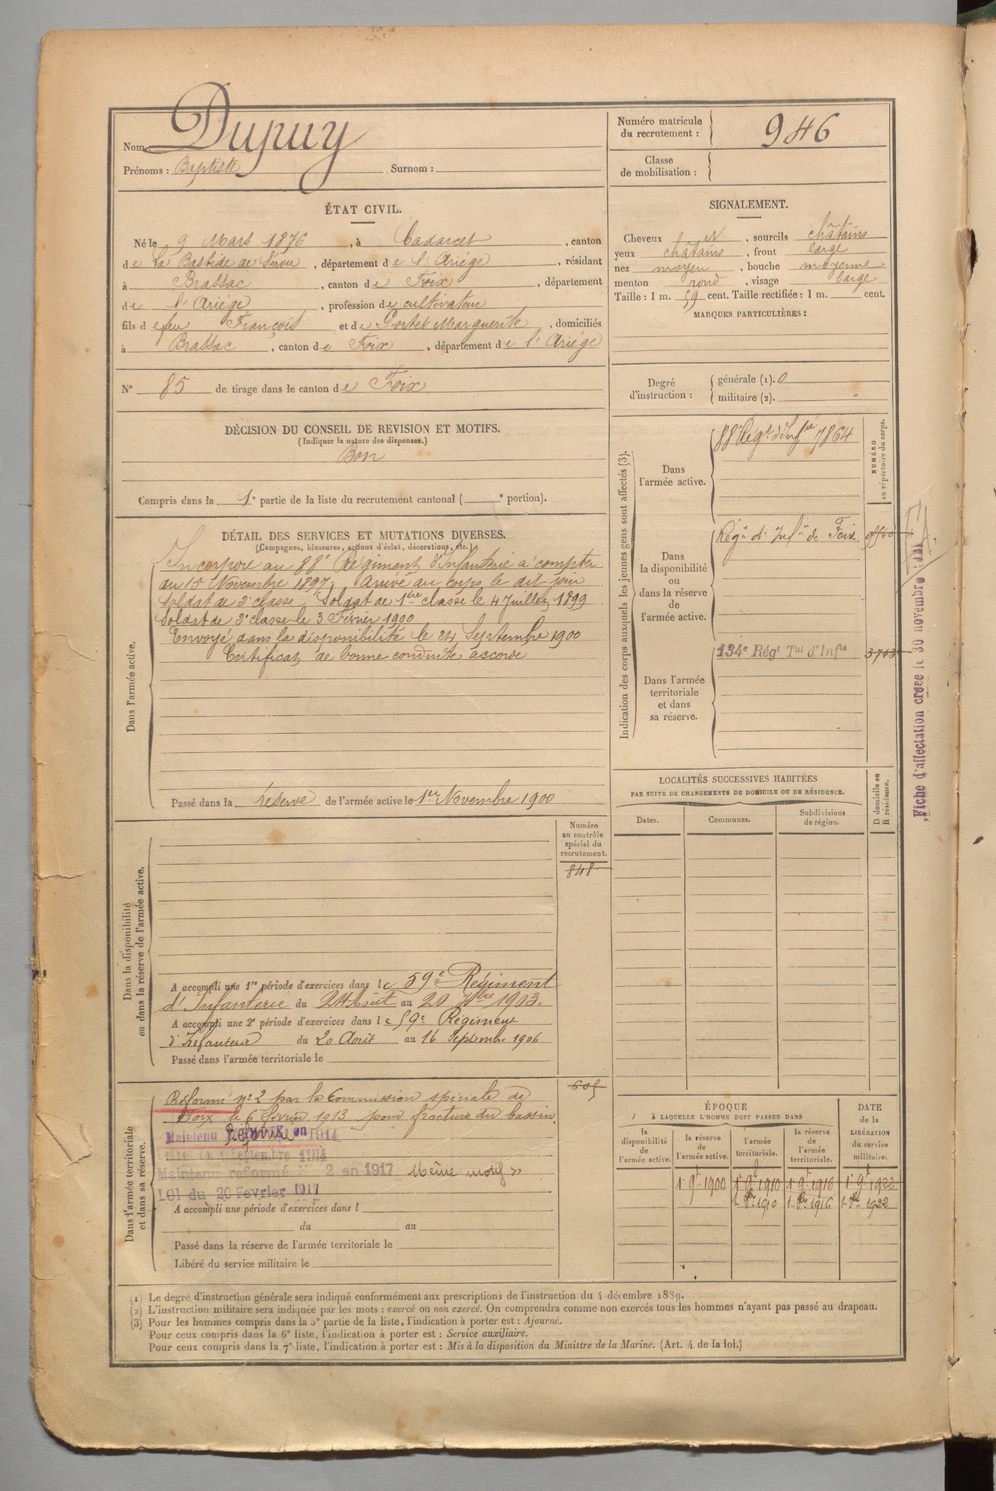 Nom Dupuy
Prénoms : Baptiste Surnom :
Numéro matricule du recrutement : 946
Classe de mobilisation :
ÉTAT CIVIL.
Né le 9 Mars 1876, à Cadarcet, canton
de La Bastide de Sérou, département de l'Ariège, résidant
à Brassac, canton de Foix, département
de l'Ariège, profession de cultivateur
fils de feu François et de Marguerite, domiciliés
à Brassac, canton de Foix, département de l'Ariège
N° 85 de tirage dans le canton de Foix
SIGNALEMENT.
Cheveux N, sourcils châtains
yeux châtains, front large
nez moyen, bouche moyenne
menton rond, visage large
Taille : 1 m. 59 cent. Taille rectifiée : 1 m. cent.
MARQUES PARTICULIÈRES :
Degré d'instruction : générale (1). 0
militaire (2).
DÉCISION DU CONSEIL DE REVISION ET MOTIFS.
(Indiquer la nature des dispenses.)
Bon
Compris dans la 1e partie de la liste du recrutement cantonal ( e portion).
DÉTAIL DES SERVICES ET MUTATIONS DIVERSES.
(Campagnes, blessures, actions d'éclat, décorations, etc.)
Dans l'armée active.
Incorporé au 88e Régiment d'infanterie à compter
du 15 Novembre 1897, arrivé au corps le dit jour
Soldat de 2e classe. Soldat de 1ère classe le 4 Juillet 1899
Soldat de 2e classe le 3 Février 1900
Envoyé dans la disponibilité le 24 Septembre 1900
Certificat de bonne conduite accordé
Passé dans la réserve de l'armée active le 1er Novembre 1900
Indication des corps auxquels les jeunes gens sont affectés (3).
NUMÉRO au répertoire du corps.
Dans l'armée active.
88e Régt d'Infrie 7864
Dans la disponibilité ou dans la réserve de l'armée active.
Régt d'Infie de Foix
Dans l'armée territoriale et dans sa réserve.
134e Régt Tal d'Infie
3703
Fiche d'affectation créée le 30 novembre
LOCALITÉS SUCCESSIVES HABITÉES
PAR SUITE DE CHANGEMENTS DE DOMICILE OU DE RÉSIDENCE.
D domicile ou R résidence.
Dates. Communes. Subdivisions de région.
Dans la disponibilité ou dans la réserve de l'armée active.
Numéro au contrôle spécial du recrutement.
848
A accompli une 1re période d'exercices dans le 59e Régiment
d'Infanterie du 24 Août au 20 7bre 1903.
A accompli une 2e période d'exercices dans le 59e Régiment
d'Infanterie du 20 Août au 16 Septembre 1906
Passé dans l'armée territoriale le
Dans l'armée territoriale et dans sa réserve.
605
Réformé n° 2 par la Commission spéciale de
Foix le 6 février 1913 pour fracture du bassin.
Maintenu Réformé en 1914
Septembre 1914
Maintenu reformé N° 2 en 1917 Même motif »
LOI du 20 Fevrier 1917
A accompli une période d'exercices dans l
du au
Passé dans la réserve de l'armée territoriale le
Libéré du service militaire le
ÉPOQUE
À LAQUELLE L'HOMME DOIT PASSER DANS
la disponibilité de l'armée active. la réserve de l'armée active. l'armée territoriale. la réserve de l'armée territoriale.
DATE de la LIBÉRATION du service militaire.
1er 9bre 1900 1er 9bre 1910 1er 9bre 1916 1er 9bre 1922
1er 8bre 1910 1er 8bre 1916 1er 8bre 1922
(1) Le degré d'instruction générale sera indiqué conformément aux prescriptions de l'instruction du 4 décembre 1889.
(2) L'instruction militaire sera indiquée par les mots : exercé ou non exercé. On comprendra comme non exercés tous les hommes n'ayant pas passé au drapeau.
(3) Pour les hommes compris dans la 5e partie de la liste, l'indication à porter est : Ajourné.
Pour ceux compris dans la 6e liste, l'indication à porter est : Service auxiliaire.
Pour ceux compris dans la 7e liste, l'indication à porter est : Mis à la disposition du Ministre de la Marine. (Art. 4 de la loi.)